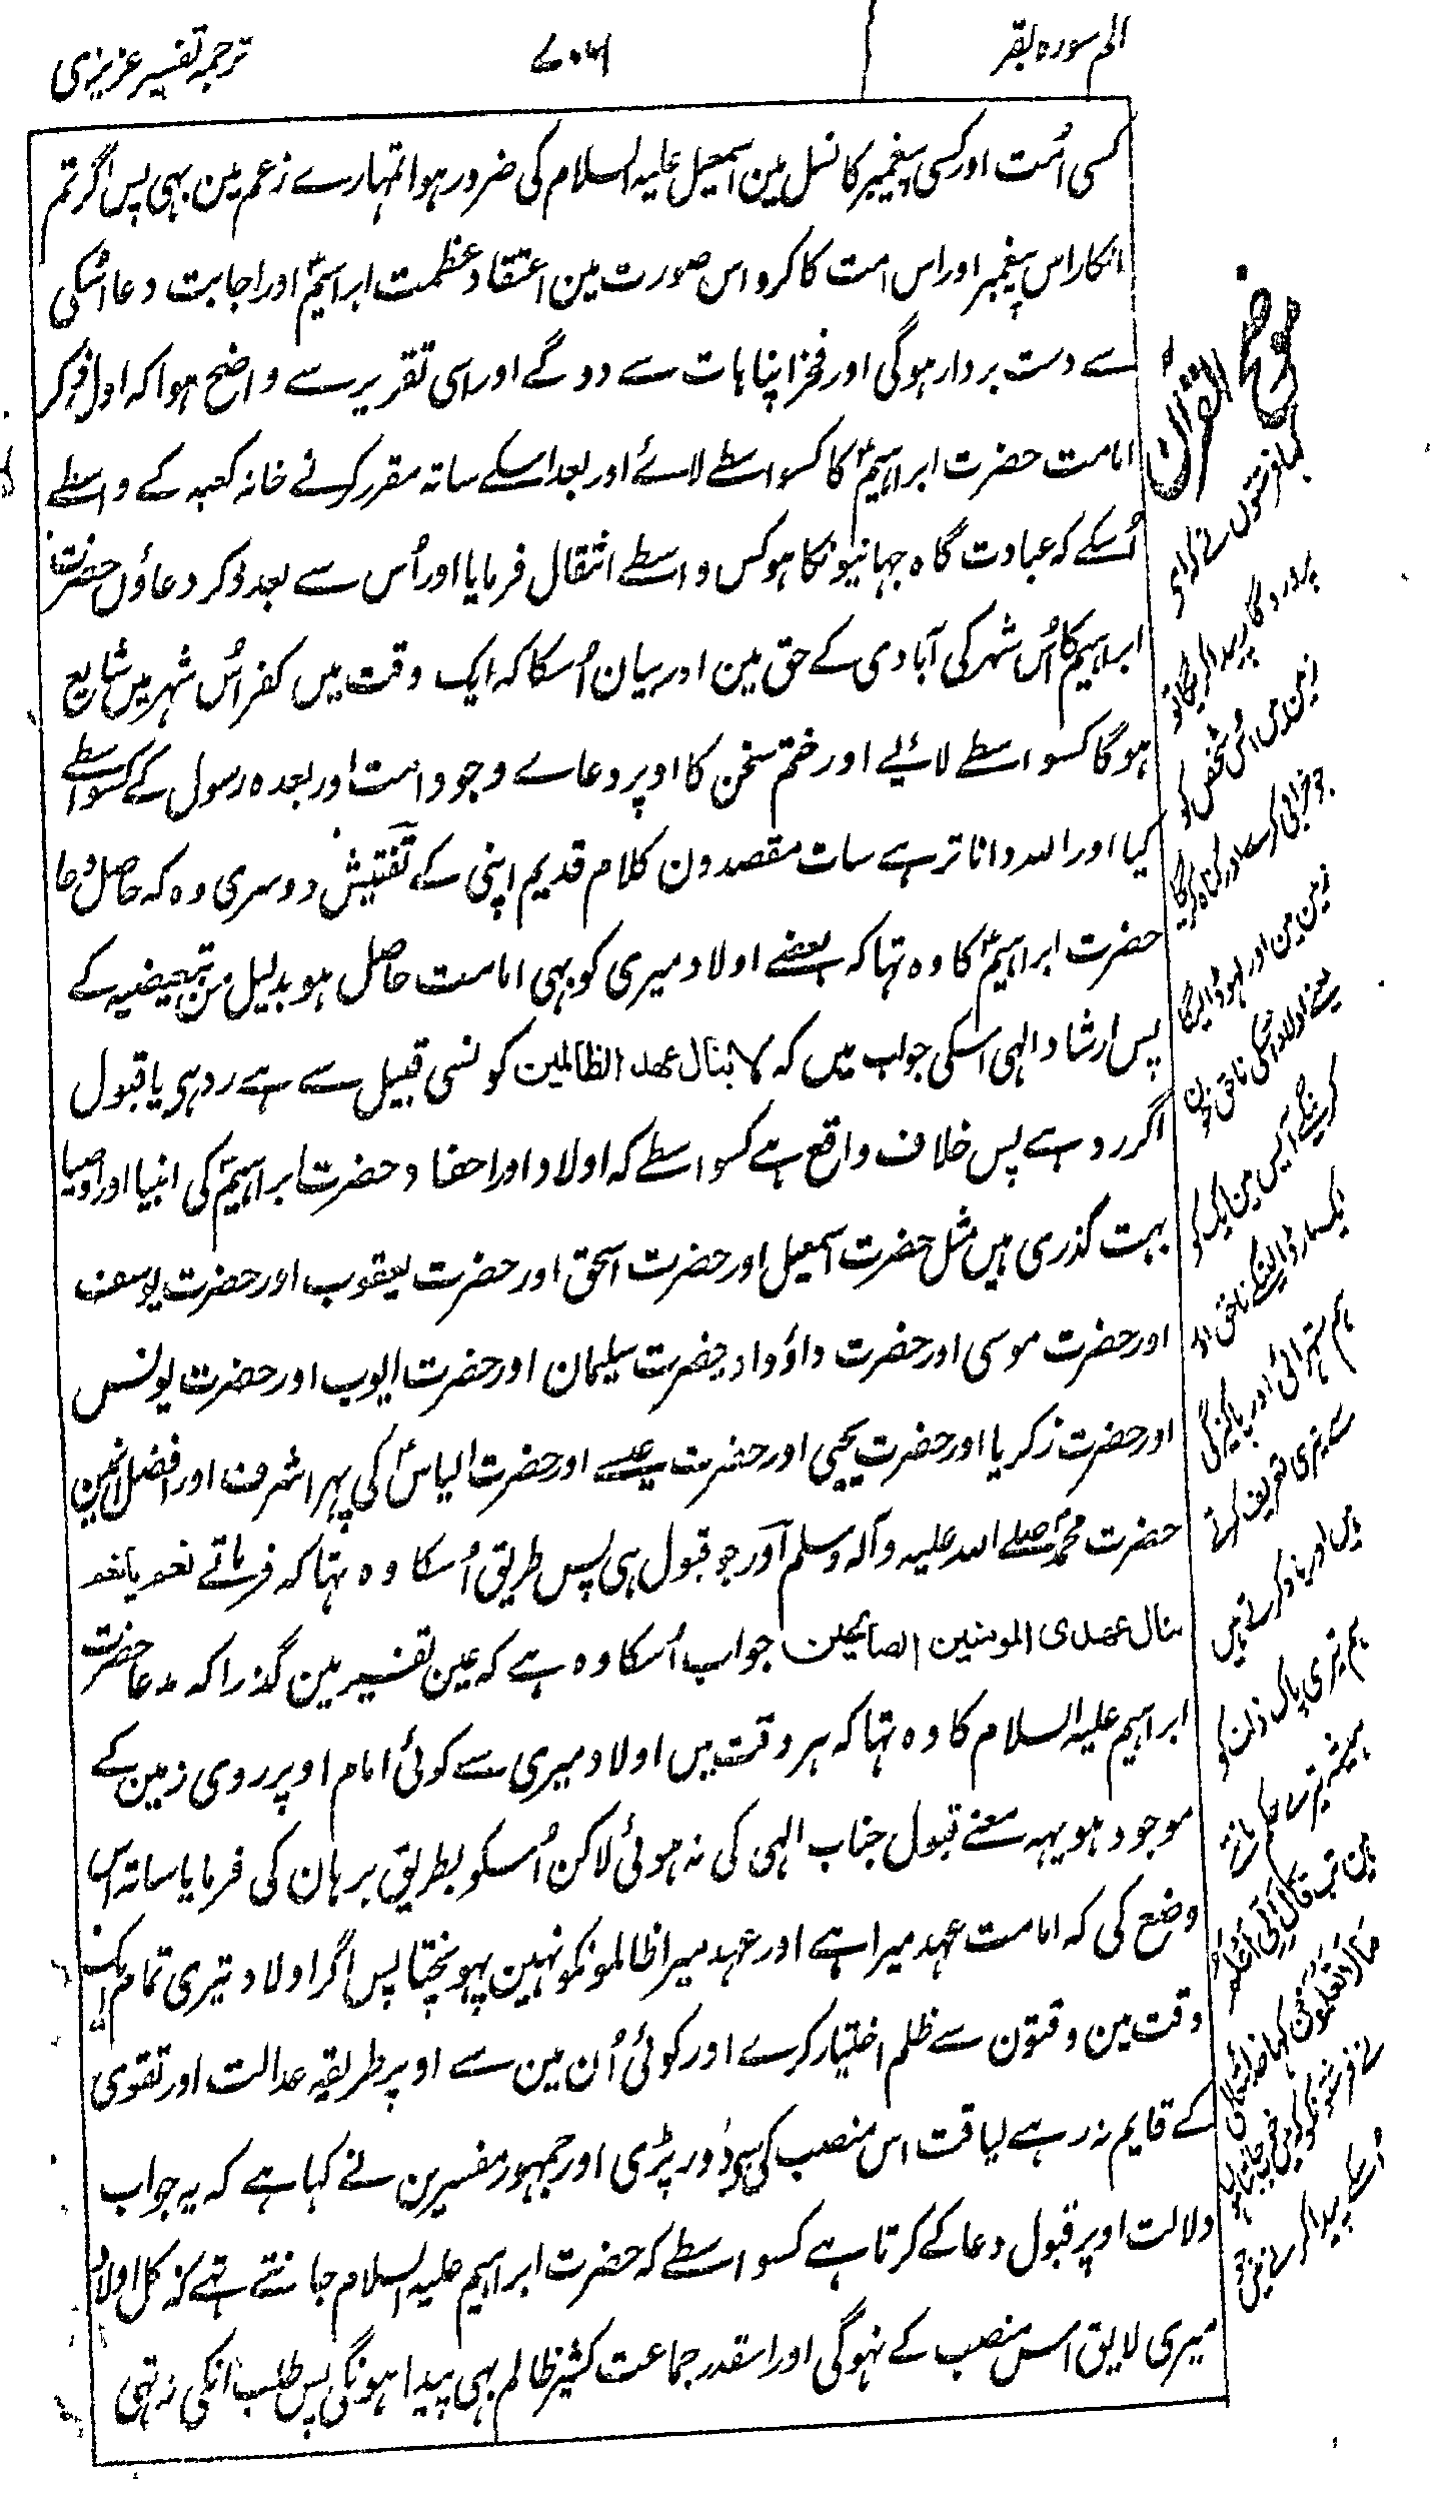 الم سورہ بقر
۷۰۶
ترجمہ تفسیر عزیزی
کسی اُمت اور کسی پیغمبر کا نسل مین اسمعیل علیہ السلام کی ضرور ہوا تمہارے زعم مین بہی پس اگر تم
انکار اس پیغمبر اور اس امت کا کرو اس صورت مین اعتقاد عظمت ابراہیمؑ اور اجابت دعا اُسکی
سے دست بردار ہوگی اور فخر اپنا ہات سے دوگے اور اسی تقریر سے واضح ہوا کہ اول ذکر
امامت حضرت ابراہیمؑ کا کسواسطے لائے اور بعد اسکے ساتہ مقرر کرنے خانہ کعبہ کے واسطے
اُسکے کہ عبادت گاہ جہانیونکا ہو کس واسطے انتقال فرمایا اور اُس سے بعد ذکر دعاؤں حضرت
ابراہیم کا اُس شہر کی آبادی کے حق مین اور بیان اُسکا کہ ایک وقت میں کفر اُس شہر میں شایع
ہوگا کسواسطے لائیے اور ختم سخن کا اوپر دعاے وجود امت اور بعدہ رسول کے کسواسطے
کیا اور اللہ دانا تر ہے سات مقصدون کلام قدیم اپنی کے تفتیش دوسری وہ کہ حاصل دعا
حضرت ابراہیمؑ کا وہ تہا کہ بعضے اولاد میری کو بہی امامت حاصل ہو بدلیل من تبعیضیہ کے
پس ارشاد الہی اسکی جواب میں کہ لا ینال عھد الظالمین کونسی قبیل سے ہے رد ہی یا قبول
اگر رد ہے پس خلاف واقع ہے کسواسطے کہ اولاد اور احفاد حضرت ابراہیمؑ کی انبیا اور اوصیا
بہت گذری ہیں مثل حضرت اسمعیل اور حضرت اسحق اور حضرت یعقوب اور حضرت یوسف
اور حضرت موسی اور حضرت داؤد اور حضرت سلیمان اور حضرت ایوب اور حضرت یونس
اور حضرت زکریا اور حضرت یحیی اور حضرت عیسے اور حضرت الیاسؑ کی پہر اشرف اور افضل انمین
حضرت محمد صلے اللہ علیہ وآلہ وسلم اور جو قبول ہی پس طریق اُسکا وہ تہا کہ فرماتے نعم یا نعم
ینال عھدی المومنین الصالحین جواب اُسکا وہ ہے کہ عین تفسیر مین گذرا کہ مدعا حضرت
ابراہیم علیہ السلام کا وہ تہا کہ ہر وقت میں اولاد میری سے کوئی امام اوپر روی زمین کے
موجود ہو یہہ معنے قبول جناب الہی کی نہ ہوئی لاکن اُسکو بطریق برہان کی فرمایا ساتہ اس
وضع کی کہ امامت عہد میرا ہے اور عہد میرا ظالمونکو نہین پہونچتا پس اگر اولاد تیری تمام ایک
وقت مین وقتون سے ظلم اختیار کرے اور کوئی اُن مین سے اوپر طریقہ عدالت اور تقوی
کے قایم نہ رہے لیاقت اس منصب کی سے دُور پڑی اور جمہور مفسرین نے کہا ہے کہ یہ جواب
دلالت اوپر قبول دعا کے کرتا ہے کسواسطے کہ حضرت ابراہیم علیہ السلام جانتے تہے کہ کل اولاد
میری لایق اس منصب کے نہوگی اور اسقدر جماعت کثیر ظالم بہی پیدا ہونگی پس طلب انکی نہ تہی
موضح القرآن
کہا فرشتوں نے کہ اے
پروردگار پیدا کریگا تو
زمین میں اُس شخص کو
جو خرابی کرے اور گناہ کریگا
زمین مین اور لہو ڈالیگا
یعنے اولاد اُسکی ناحق خون
کرینگے آپس مین ایک کو
ایک مار ڈالینگے ناحق اور
ہم ستہرائی اور پاکیزگی
سے تیری تعریف کرتے
ہیں اور یاد کرتے ہیں
ہم تیری پاک ذات کو
ہمیشہ تیرے حکم مانتے
ہین تب قال اِنّی اَعلَمُ
مَا لَا تَعلَمُونَ کہا خدا تعالی
نے فرشتونکو کہ میں خوب جانتا ہوں
اُسکے پیدا کرنے میں